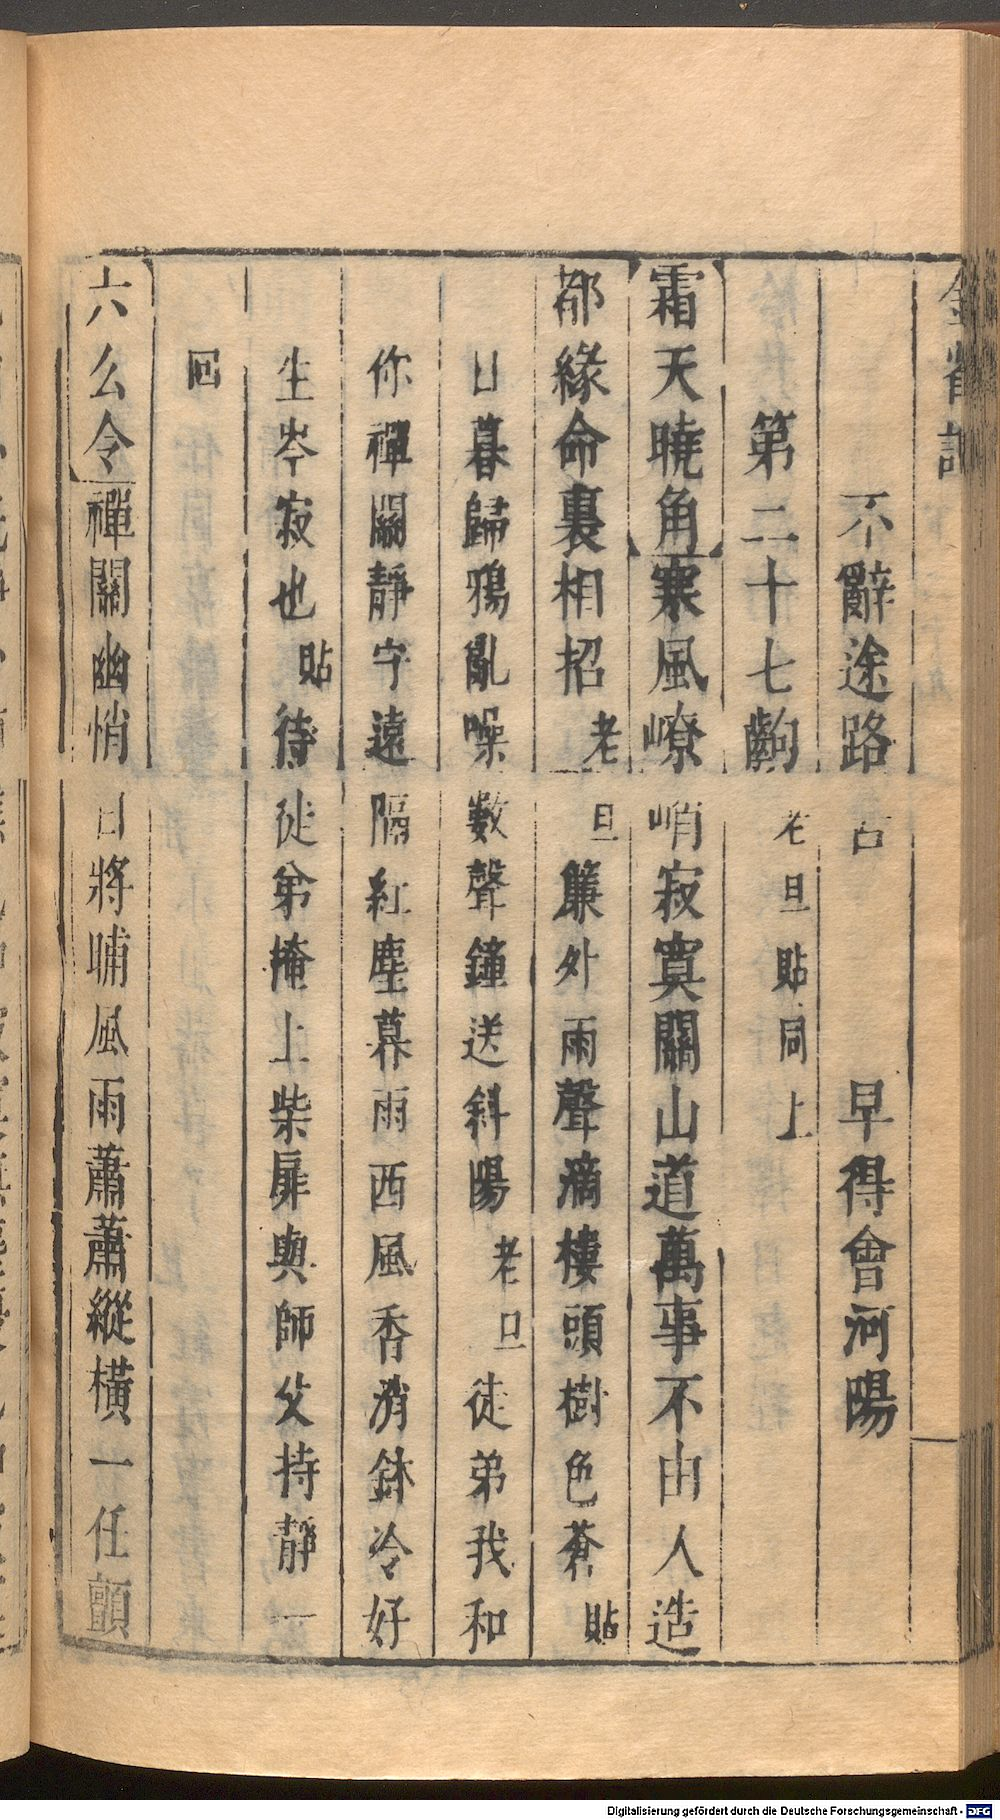 不辭途路古　早得會河陽
第二十七齣　老旦貼同上
霜天曉角寒風嘹哨寂寞關山道萬事不由人造
都緣命裏相招老旦簾外雨聲滴樓頭樹色蒼貼
日暮歸鴉亂噪數聲鐘送斜陽老旦徒弟我和
你禪關靜守遠隔紅塵暮雨西風香消鉢冷好
生岑寂也貼待徒弟掩上柴扉與師父持靜一
回
六么令禪關幽悄日將晡風雨蕭蕭縱橫一任顫
Digitalisierung gefördert durch die Deutsche Forschungsgemeinschaft - DFG